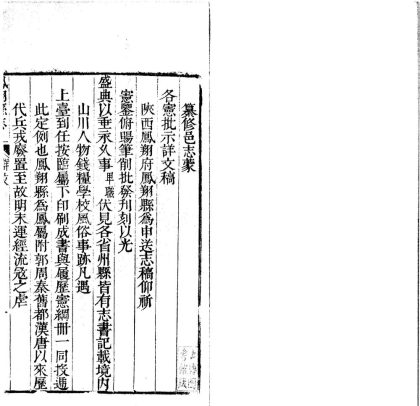 纂修邑志蒙
各憲批示詳文稿
陝西鳳翔府鳳翔縣為申送志稿仰祈
憲鑒俯賜筆削批發刊刻以光
盛典以垂永久事卑職伏見各省州縣皆有志書記載境內
山川人物錢糧學校風俗事跡凡遇
上臺到任按臨屬下印刷成書與履歷憲綱冊一同投遞
此定例也鳳翔縣為鳳屬附郭周秦舊都漢唐以來歷
代兵戎廢置至故明末運經流寇之虐